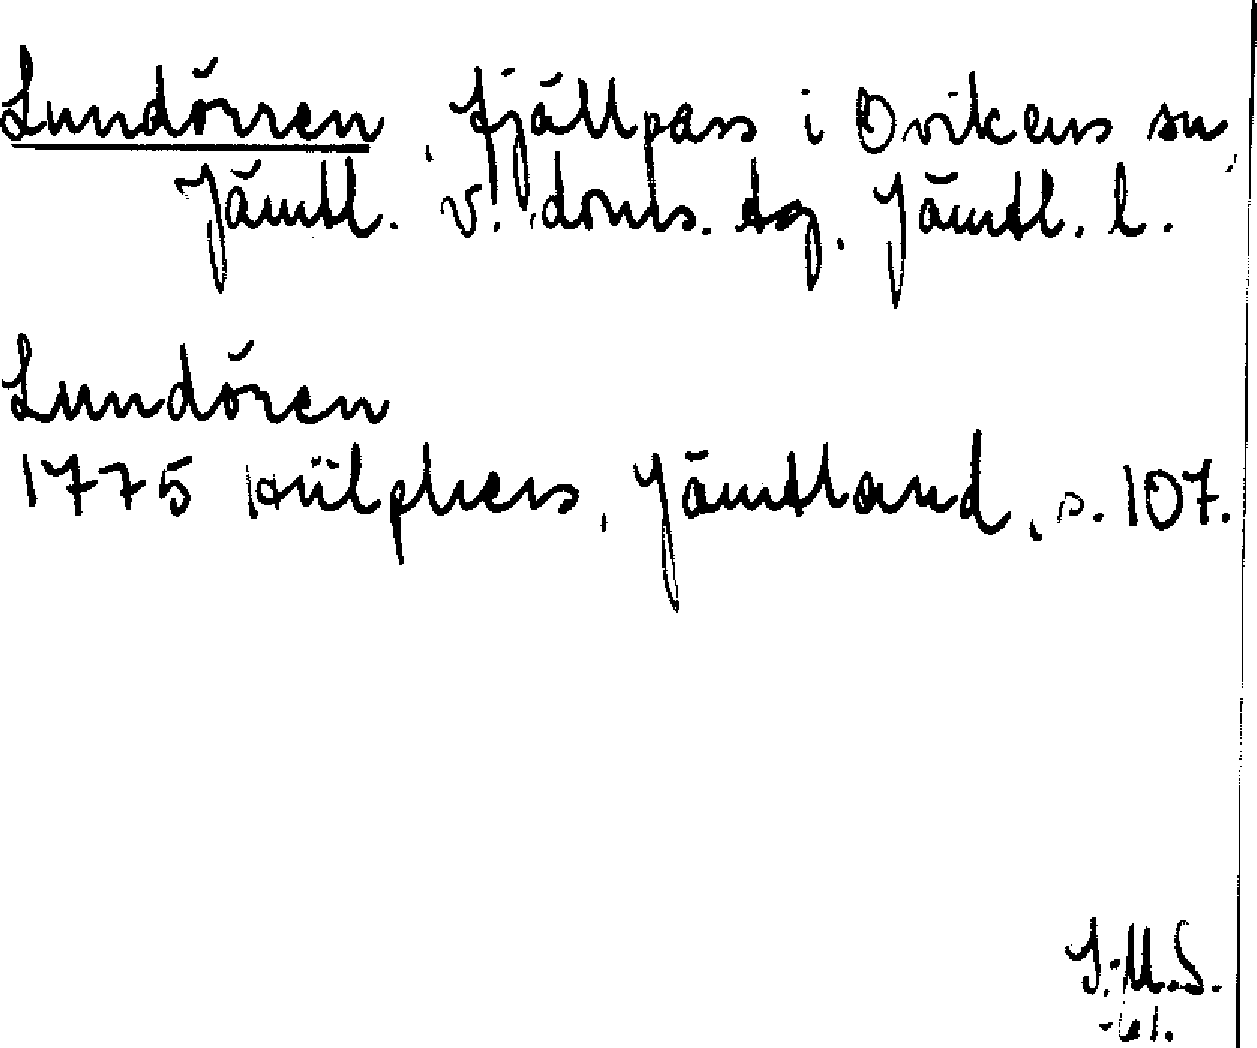 Lundörren, fjällpass i Ovikens sn,
Jämtl. v. doms. tg, Jämtl. l.
Lundören
1775 Hülphers, Jämtland, s. 107.
I.-M.S.
-61.